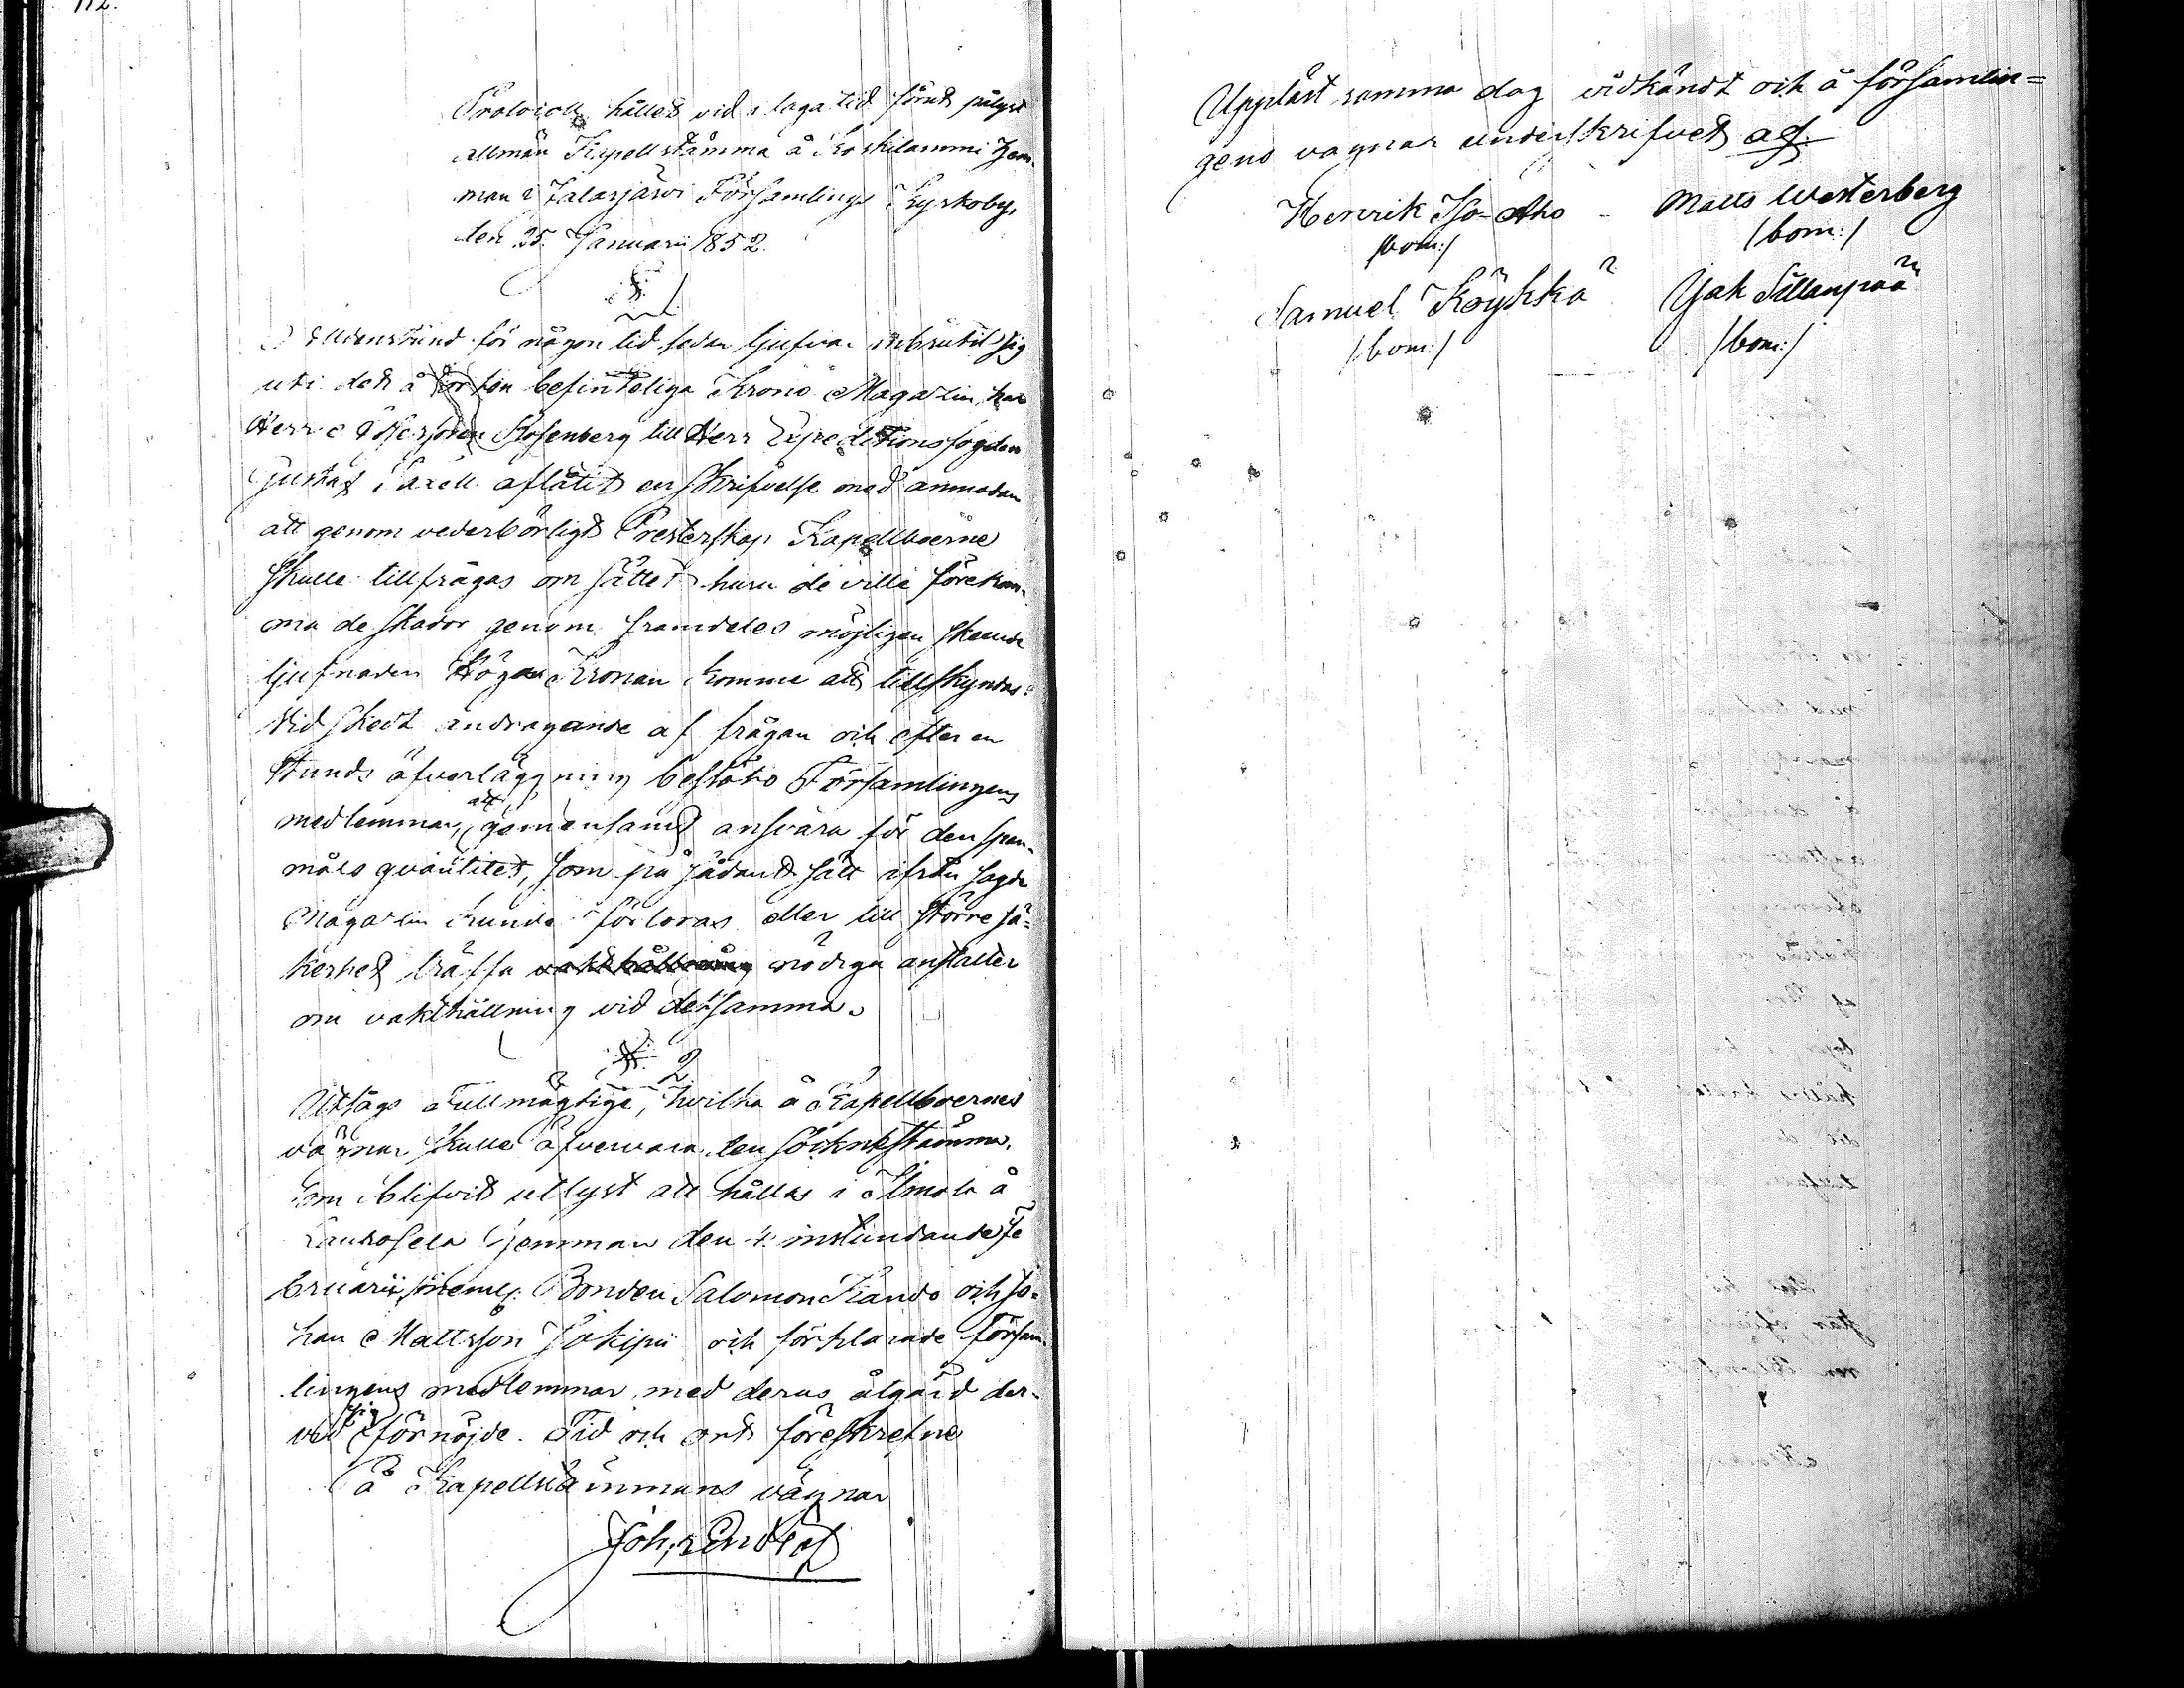 112.
Protocoll hållet vid i laga tid förut pålyst
allmän Kapellstämma å Koskilammi Hem-
man i Jalasjärvi Församlings Kyrkoby,
den 25. Januarii 1852.
§. 1.
Alldenstund för någon tid sedan tjufvar inbrutit sig
uti det å befinteliga Krono Magazin, har
Herr Rosenberg till Herr Expeditionsfogden
Gustaf aflåtit en skrifvelse med anmodan
att genom vederbörligt Presterskap Kapellboerne
skulle tillfrågas om sättet huru de ville förekom-
ma de skador genom framdeles möjligen skeende
tjufnader Höga Kronan komme att tillskyndas.
Vid skedt andragande af frågan och efter en
stunds öfverläggning beslöto Församlingens
medlemmar, att gemensamt ansvara för den span-
måls qvantitet, som på sådant sätt ifrån sagde
Magazin kunde förloras eller till större sä-
kerhet träffa vakthållning nödiga anstalter
om vakthållning vid detsamma.
§. 2
Uttågs Fullmägtige, hvilka å Kapellboernes
vägnar skulle öfvervara den Socknestämma,
som blifvit utlyst att hållas i Ilmola å
Hemman den 4 instundande Fe
bruarii, nemlig: Bonden Salomon Rando och Jo-
han Mattsson Jokipii och förklarade Försam-
lingens medlemmar med deras åtgärd der-
vid sig förnöjde. Tid och ort föreskrefne
På Kapellstämmans vägnar
Joh.
Uppläst samma dag vidkändt och å församlin=
gens vägnar underskrifvet af.
Henrik Iso-Aho - Matts Westerberg
/bom:/ /bom:/
Samuel Köykkä Jak Sillanpää
/bom:/ /bom:/